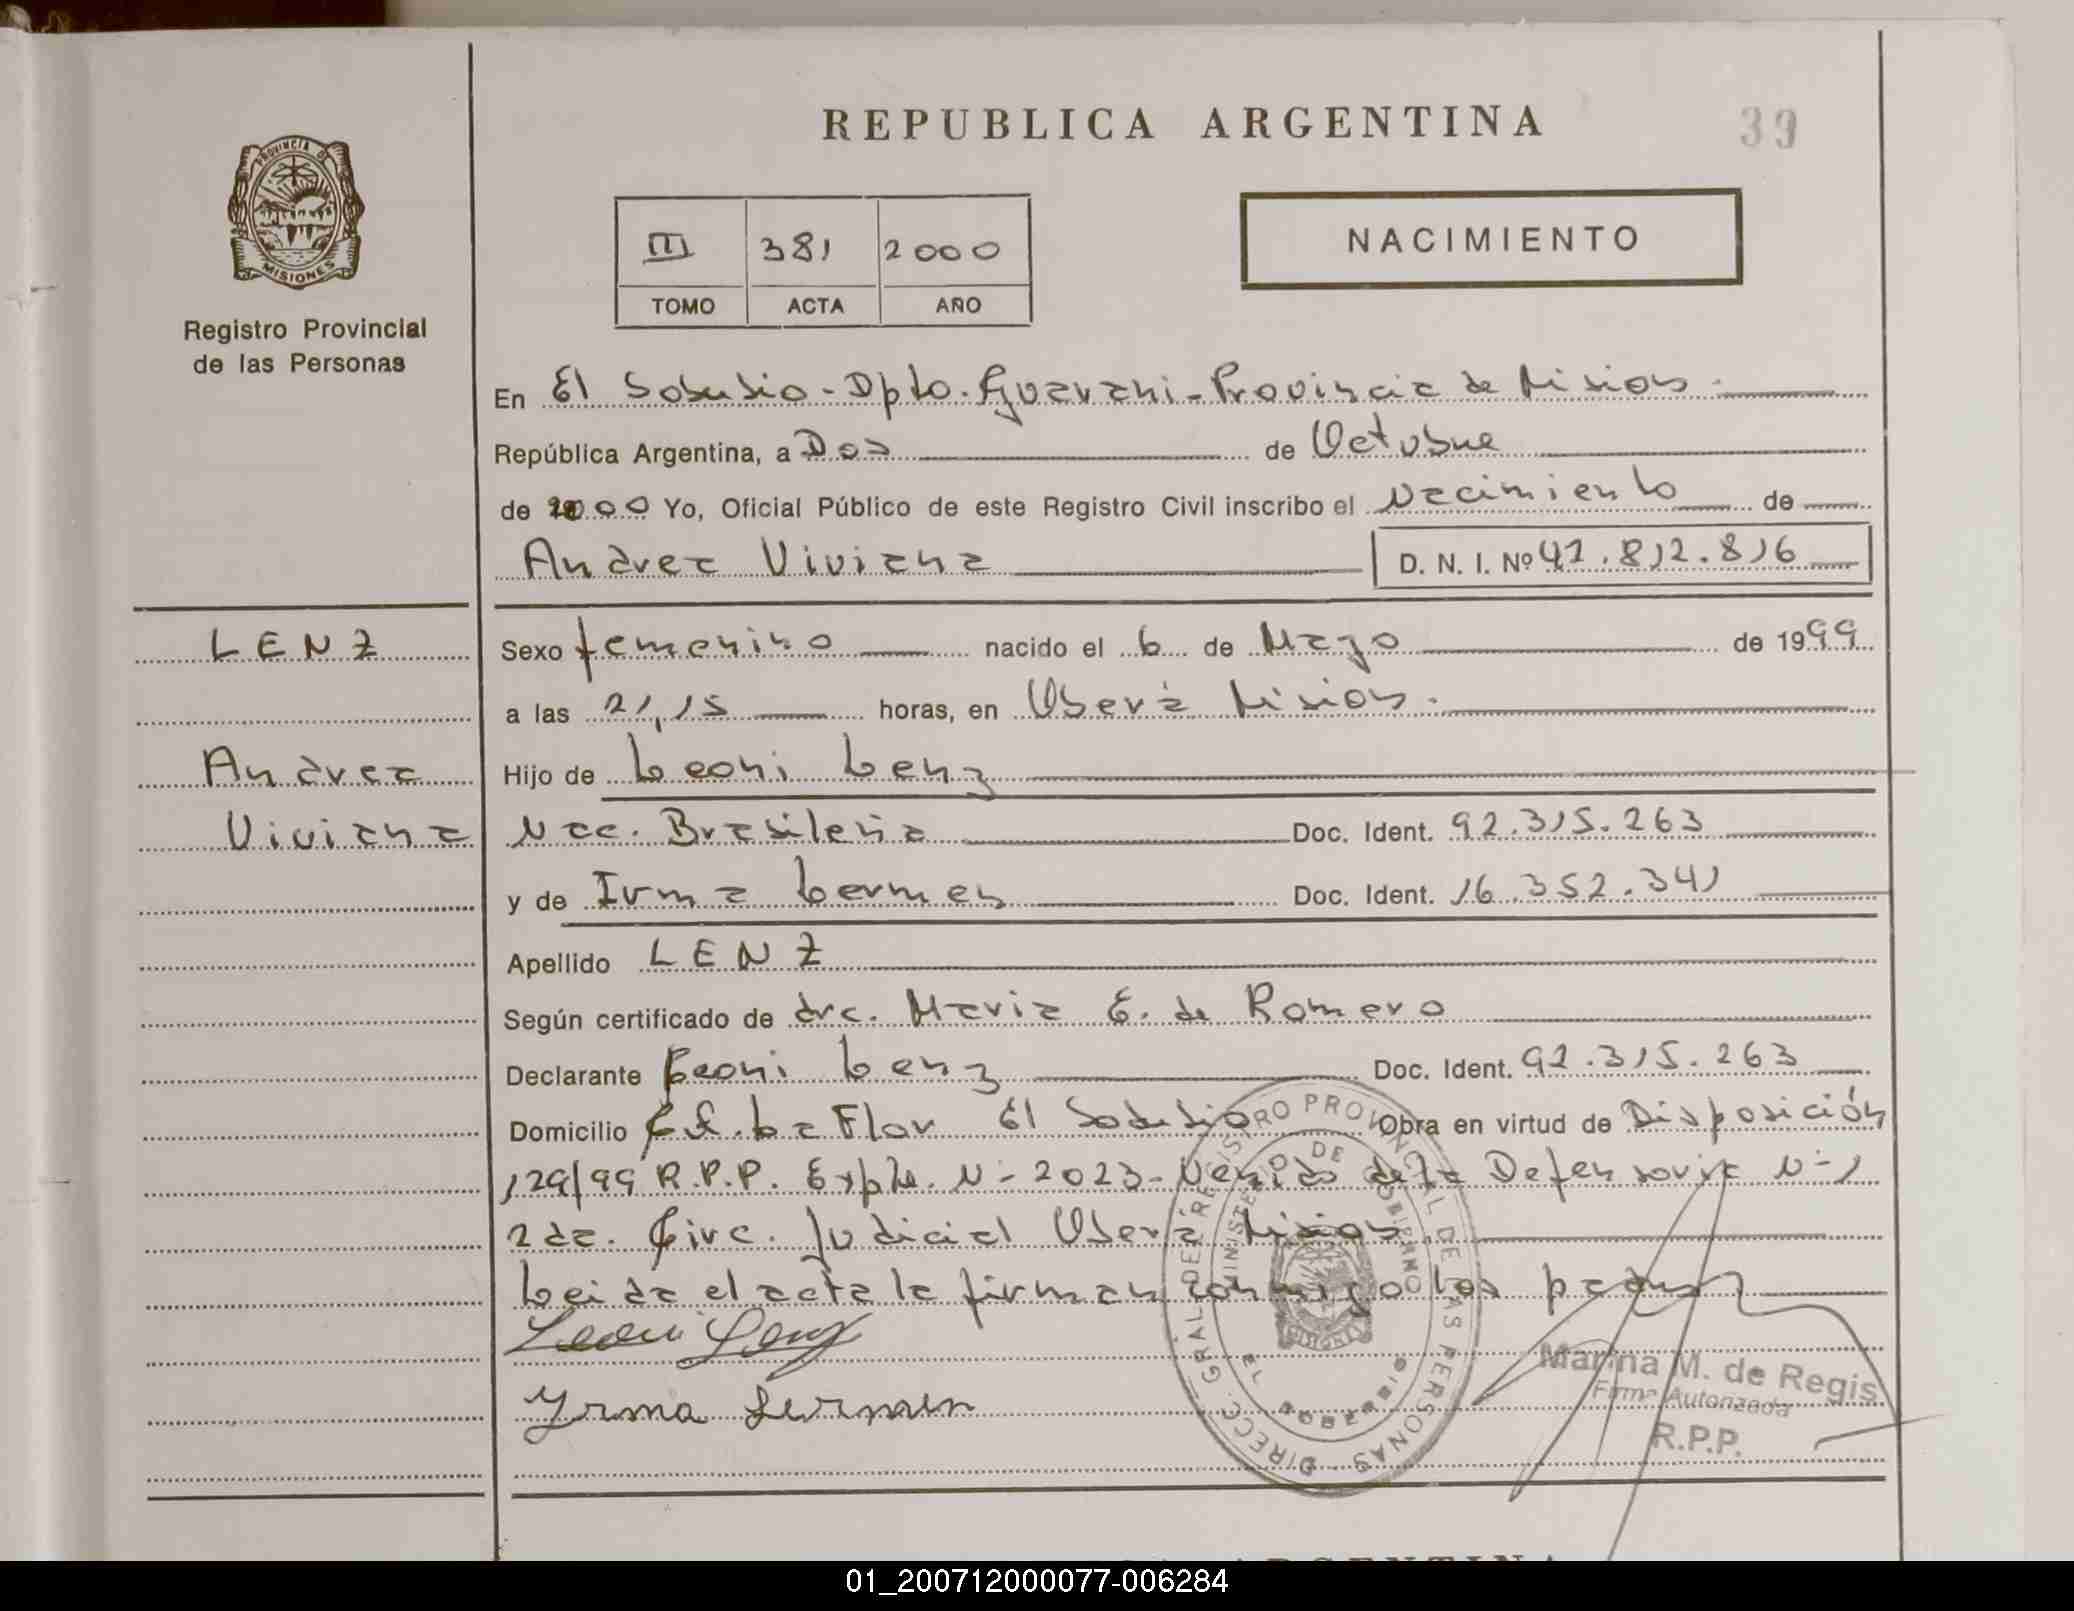 REPUBLICA ARGENTINA
39
PROVINCIA DE
MISIONES
Registro Provincial
de las Personas
III 381 2000
TOMO ACTA AÑO
NACIMIENTO
En El Soberbio - Dpto. Guarani - Provincia de Misiones.
República Argentina, a Dos de Octubre
de 2000 Yo, Oficial Público de este Registro Civil inscribo el Nacimiento de
Andrea Viviana D. N. I. Nº 42.812.816
LENZ
Andrea
Viviana
Sexo femenino nacido el 6 de Mayo de 1999
a las 21,15 horas, en Oberá Misiones.
Hijo de Leoni Lenz
Nac. Brasileña Doc. Ident. 92.315.263
y de Irma Lermen Doc. Ident. 16.352.341
Apellido LENZ
Según certificado de dra. Maria E. de Romero
Declarante Leoni Lenz Doc. Ident. 92.315.263
Domicilio La Flor El Soberbio Obra en virtud de Disposición
129/99 R.P.P. Expte. N- 2023- Venido de la Defensoria N-1
2da. Circ. Judicial Oberá Misiones
Leida el acta la firman conmigo los padres
Leoni Lenz
Yrma Lermen
DIRECC. GRAL. DEL REGISTRO PROVINCIAL DE LAS PERSONAS
MINISTERIO DE GOBIERNO
EL SOBERBIO
MISIONES
Marina M. de Regis
Firma Autorizada
R.P.P.
01_200712000077-006284